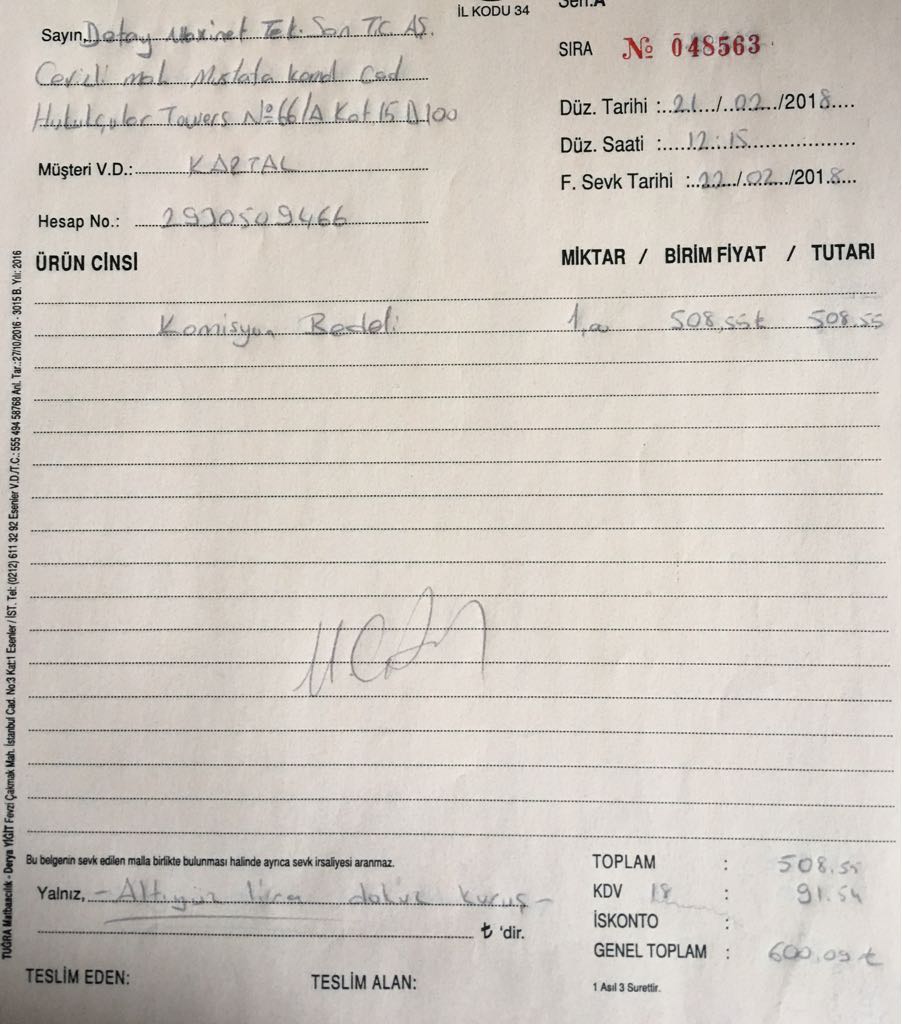 İL KODU 34
Seri.A
Sayın, Detay Maxinet Tek. San Tic AŞ.
SIRA № 048563
Cevizli mah Mustafa Kemal Cad
Towers No:66/A Kat 15 D100
Düz. Tarihi : 21/02/2018
Düz. Saati : 12:15
Müşteri V.D.: KARTAL
F. Sevk Tarihi : 22/02/2018
Hesap No.: 2930509466
ÜRÜN CİNSİ MİKTAR / BİRİM FİYAT / TUTARI
Komisyon Bedeli 1,00 508,55₺ 508.55
TUĞRA Matbaacılık - Derya YİĞİT Fevzi Çakmak Mah. İstanbul Cad. No:3 Kat:1 Esenler / İST. Tel: (0212) 611 32 92 Esenler V.D./T.C.: 555 494 58768 Anl. Tar.:27/10/2016 - 3015 B. Yılı: 2016
Bu belgenin sevk edilen malla birlikte bulunması halinde ayrıca sevk irsaliyesi aranmaz.
TOPLAM : 508.55
Yalnız, - Altıyüz lira dokuz kuruş -
KDV 18 : 91.54
İSKONTO :
₺ 'dir.
GENEL TOPLAM : 600.09 ₺
TESLİM EDEN: TESLİM ALAN:
1 Asıl 3 Surettir.